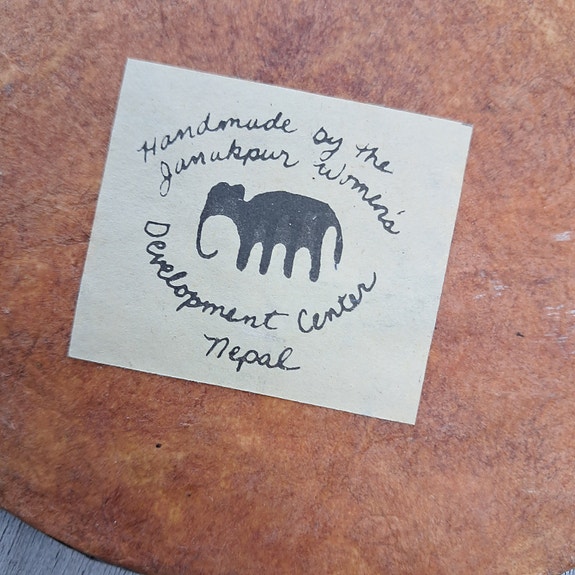 Handmade by the
Janakpur Women's
Development Center
Nepal